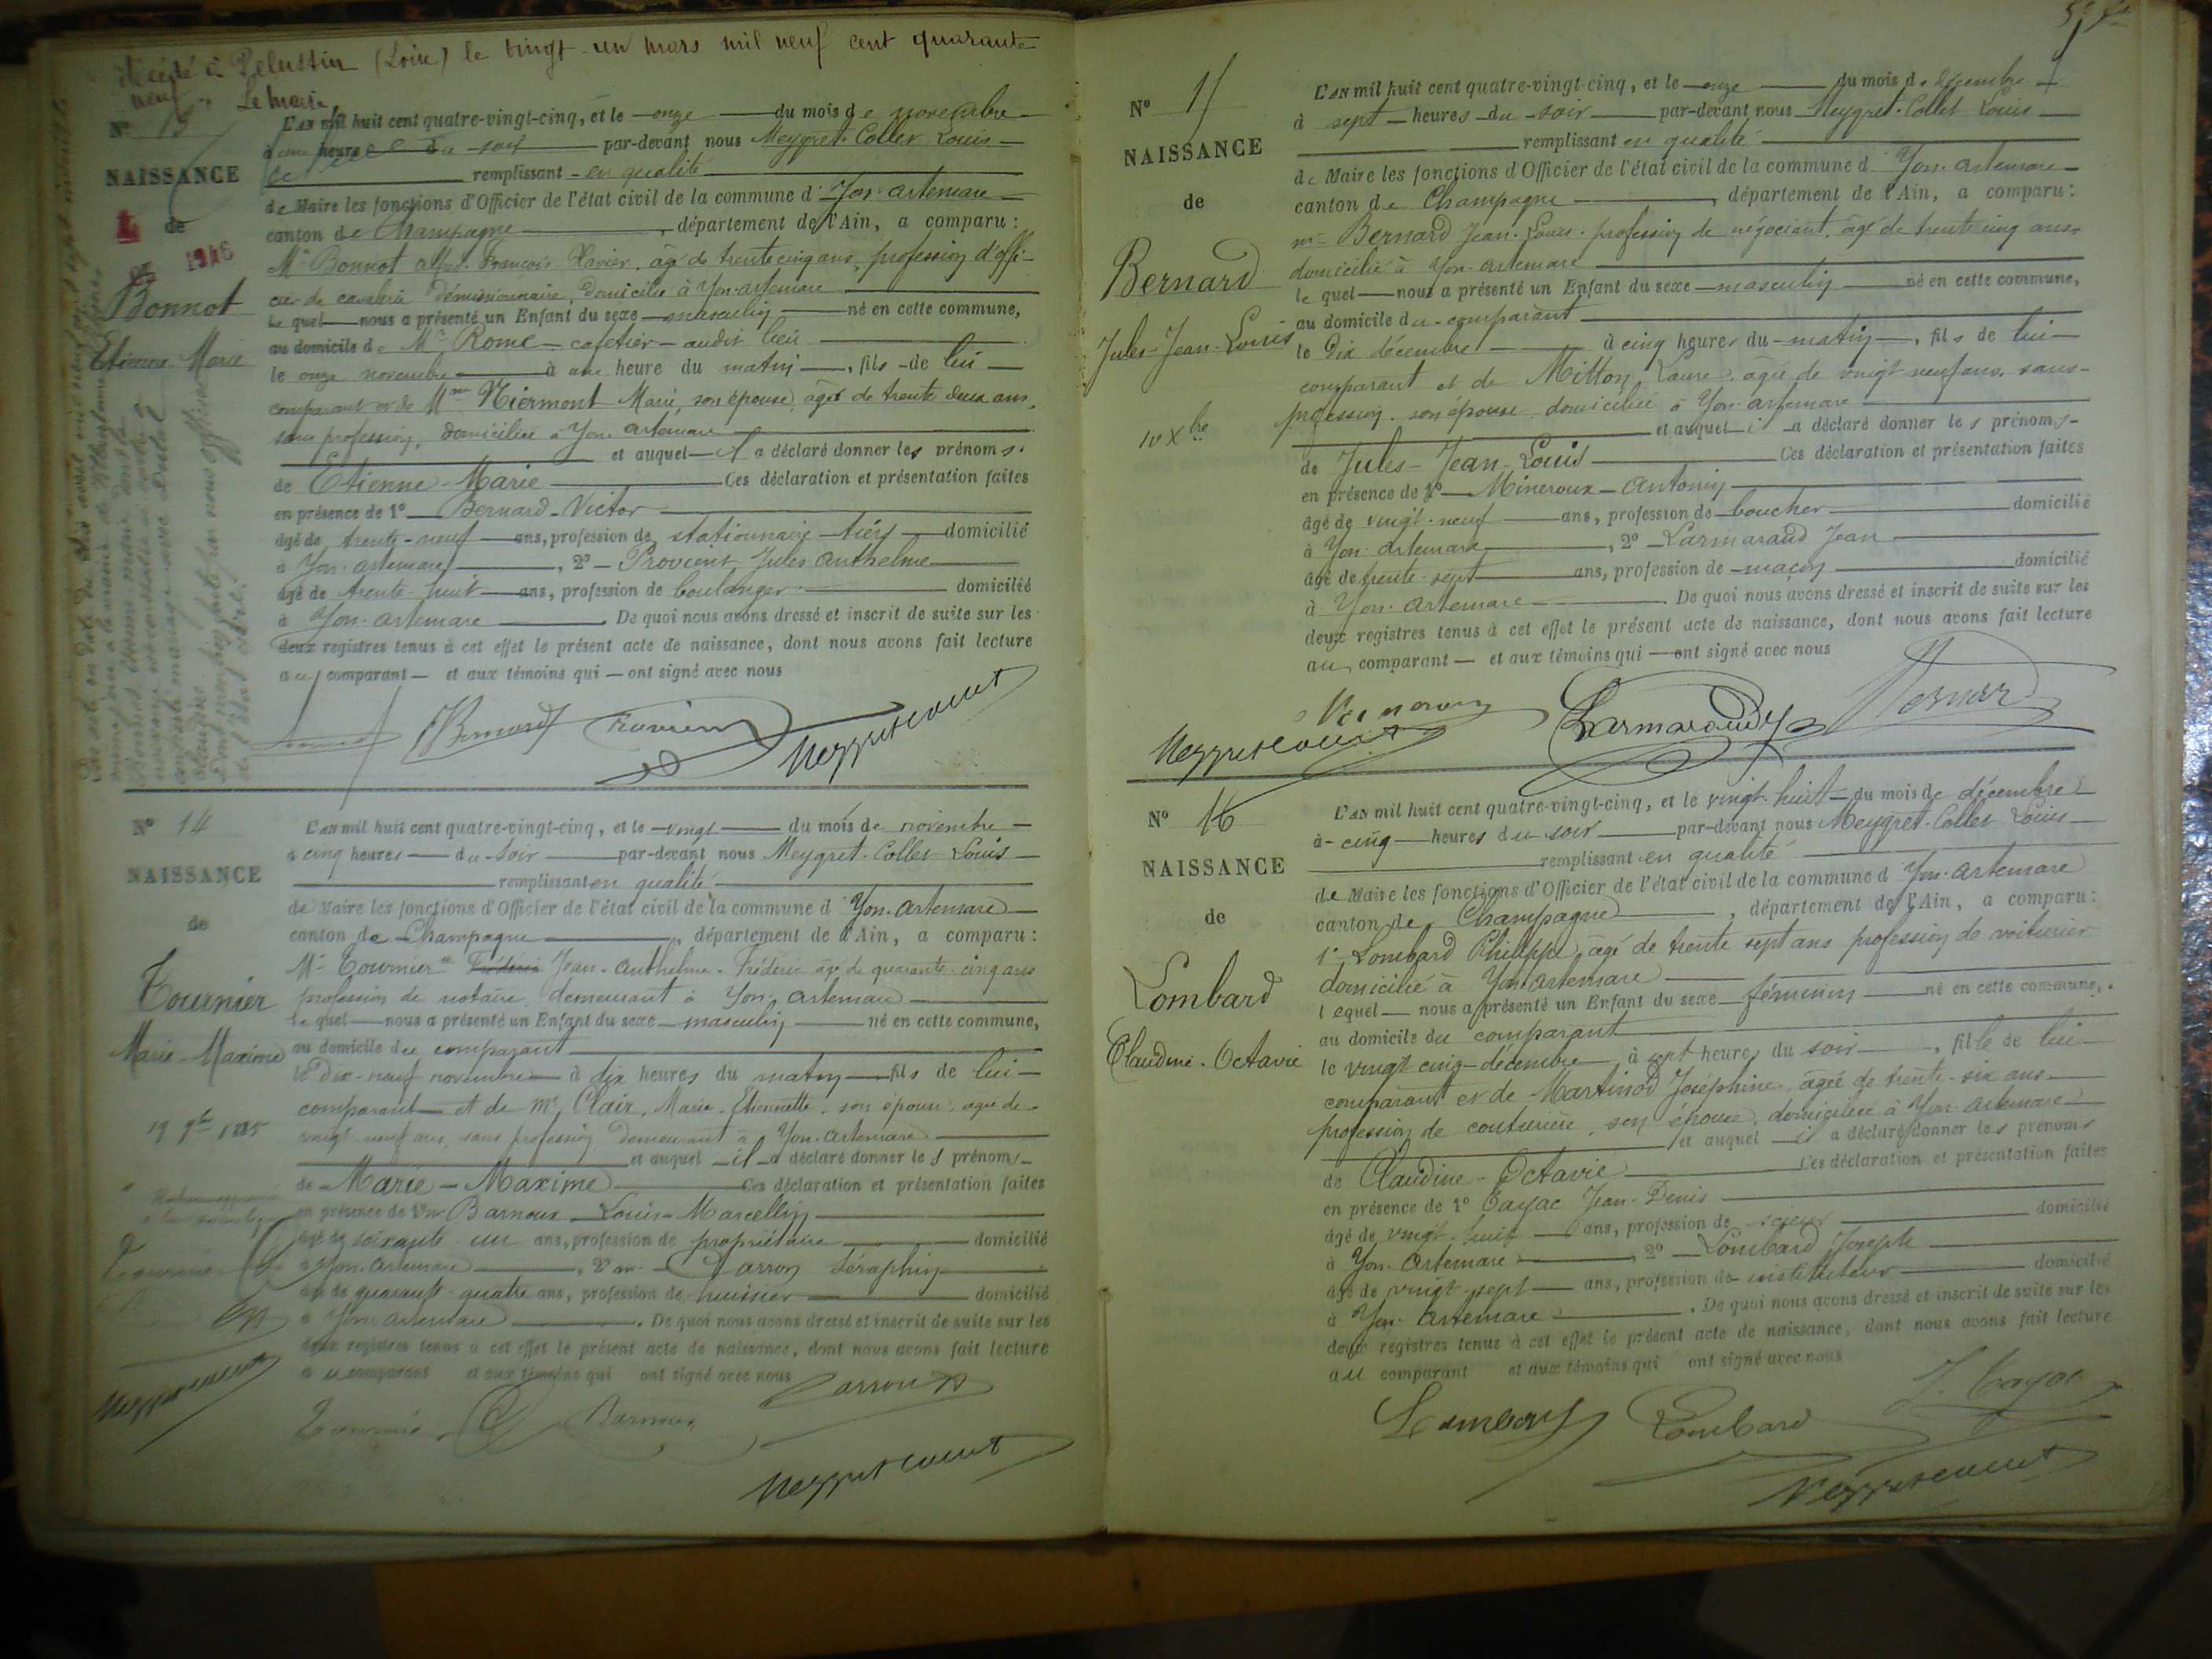 décédé à Pelussin (Loire) le vingt-un mars mil neuf cent quarante
neuf. Le Maire
N° 13
NAISSANCE
de
1946
Bonnot
Etienne Marie
L'AN mil huit cent quatre-vingt-cinq, et le onze du mois de novembre
à une heure du soir par-devant nous Meygret-Collet Louis
remplissant en qualité
de Maire les fonctions d'Officier de l'état civil de la commune d'Yon-Artemare
canton de Champagne, département de l'Ain, a comparu :
Mr Bonnot Alfred François Xavier, âgé de trente cinq ans, profession d'offi-
cier de cavalerie démissionnaire, domicilié à Yon-Artemare
le quel nous a présenté un Enfant du sexe masculin né en cette commune,
au domicile de Mr Rome cafetier audit lieu
le onze novembre à une heure du matin, fils de lui
comparant et de Mme Niermont Marie, son épouse, âgée de trente deux ans,
sans profession, domiciliée à Yon-Artemare
et auquel il a déclaré donner les prénoms
de Etienne-Marie Ces déclaration et présentation faites
en présence de 1° Bernard Victor
âgé de trente-neuf ans, profession de stationnaire domicilié
à Yon-Artemare, 2° Provient Jules Anthelme
âgé de trente-huit ans, profession de boulanger domicilié
à Yon-Artemare. De quoi nous avons dressé et inscrit de suite sur les
deux registres tenus à cet effet le présent acte de naissance, dont nous avons fait lecture
au comparant et aux témoins qui ont signé avec nous
N° 14
NAISSANCE
de
Tournier
Marie-Maxime
19 9bre 1885
L'AN mil huit cent quatre-vingt-cinq, et le vingt du mois de novembre
à cinq heures du soir par-devant nous Meygret-Collet Louis
remplissant en qualité
de Maire les fonctions d'Officier de l'état civil de la commune d'Yon-Artemare
canton de Champagne, département de l'Ain, a comparu :
Mr Tournier Frédéric Jean-Anthelme-Frédéric âgé de quarante-cinq ans
profession de notaire, demeurant à Yon-Artemare
le quel nous a présenté un Enfant du sexe masculin né en cette commune,
au domicile du comparant
le dix-neuf novembre à dix heures du matin fils de lui
comparant et de Me Clair Marie-Etiennette, son épouse, âgée de
vingt-neuf ans, sans profession demeurant à Yon-Artemare
et auquel il a déclaré donner les prénoms
de Marie-Maxime Ces déclaration et présentation faites
en présence de Barnoux Louis-Marcellin
âgé de soixante-un ans, profession de propriétaire domicilié
à Yon-Artemare, 2° Carron Séraphin
âgé de quarante-quatre ans, profession de huissier domicilié
à Yon-Artemare. De quoi nous avons dressé et inscrit de suite sur les
deux registres tenus à cet effet le présent acte de naissance, dont nous avons fait lecture
au comparant et aux témoins qui ont signé avec nous
N° 15
NAISSANCE
de
Bernard
Jules-Jean-Louis
10 Xbre
L'AN mil huit cent quatre-vingt-cinq, et le onze du mois de décembre
à sept heures du soir par-devant nous Meygret-Collet Louis
remplissant en qualité
de Maire les fonctions d'Officier de l'état civil de la commune d'Yon-Artemare
canton de Champagne, département de l'Ain, a comparu :
Mr Bernard Jean-Louis profession de négociant, âgé de trente cinq ans
domicilié à Yon-Artemare
le quel nous a présenté un Enfant du sexe masculin né en cette commune,
au domicile du comparant
le dix décembre à cinq heures du matin, fils de lui
comparant et de Mitton Laure âgée de vingt-neuf ans, sans
profession, son épouse domiciliée à Yon-Artemare
et auquel il a déclaré donner les prénoms
de Jules-Jean-Louis Ces déclaration et présentation faites
en présence de 1° Mineroux Antonin
âgé de vingt-neuf ans, profession de boucher domicilié
à Yon-Artemare, 2° Larmaraud Jean
âgé de trente-sept ans, profession de maçon domicilié
à Yon-Artemare. De quoi nous avons dressé et inscrit de suite sur les
deux registres tenus à cet effet le présent acte de naissance, dont nous avons fait lecture
au comparant et aux témoins qui ont signé avec nous
N° 16
NAISSANCE
de
Lombard
Claudine-Octavie
L'AN mil huit cent quatre-vingt-cinq, et le vingt-huit du mois de décembre
à cinq heures du soir par-devant nous Meygret-Collet Louis
remplissant en qualité
de Maire les fonctions d'Officier de l'état civil de la commune d'Yon-Artemare
canton de Champagne, département de l'Ain, a comparu :
Lombard Philippe, âgé de trente sept ans profession de voiturier
domicilié à Yon-Artemare
lequel nous a présenté un Enfant du sexe féminin né en cette commune,
au domicile du comparant
le vingt cinq décembre à sept heures du soir, fille de lui
comparant et de Martinod Joséphine, âgée de trente-six ans
profession de couturière, son épouse, domiciliée à Yon-Artemare
et auquel il a déclaré donner les prénoms
de Claudine-Octavie Ces déclaration et présentation faites
en présence de 1° Cayac Jean-Denis
âgé de vingt-huit ans, profession de domicilié
à Yon-Artemare 2° Lombard Joseph
âgé de vingt-sept ans, profession de instituteur domicilié
à Yon-Artemare. De quoi nous avons dressé et inscrit de suite sur les
deux registres tenus à cet effet le présent acte de naissance, dont nous avons fait lecture
au comparant et aux témoins qui ont signé avec nous